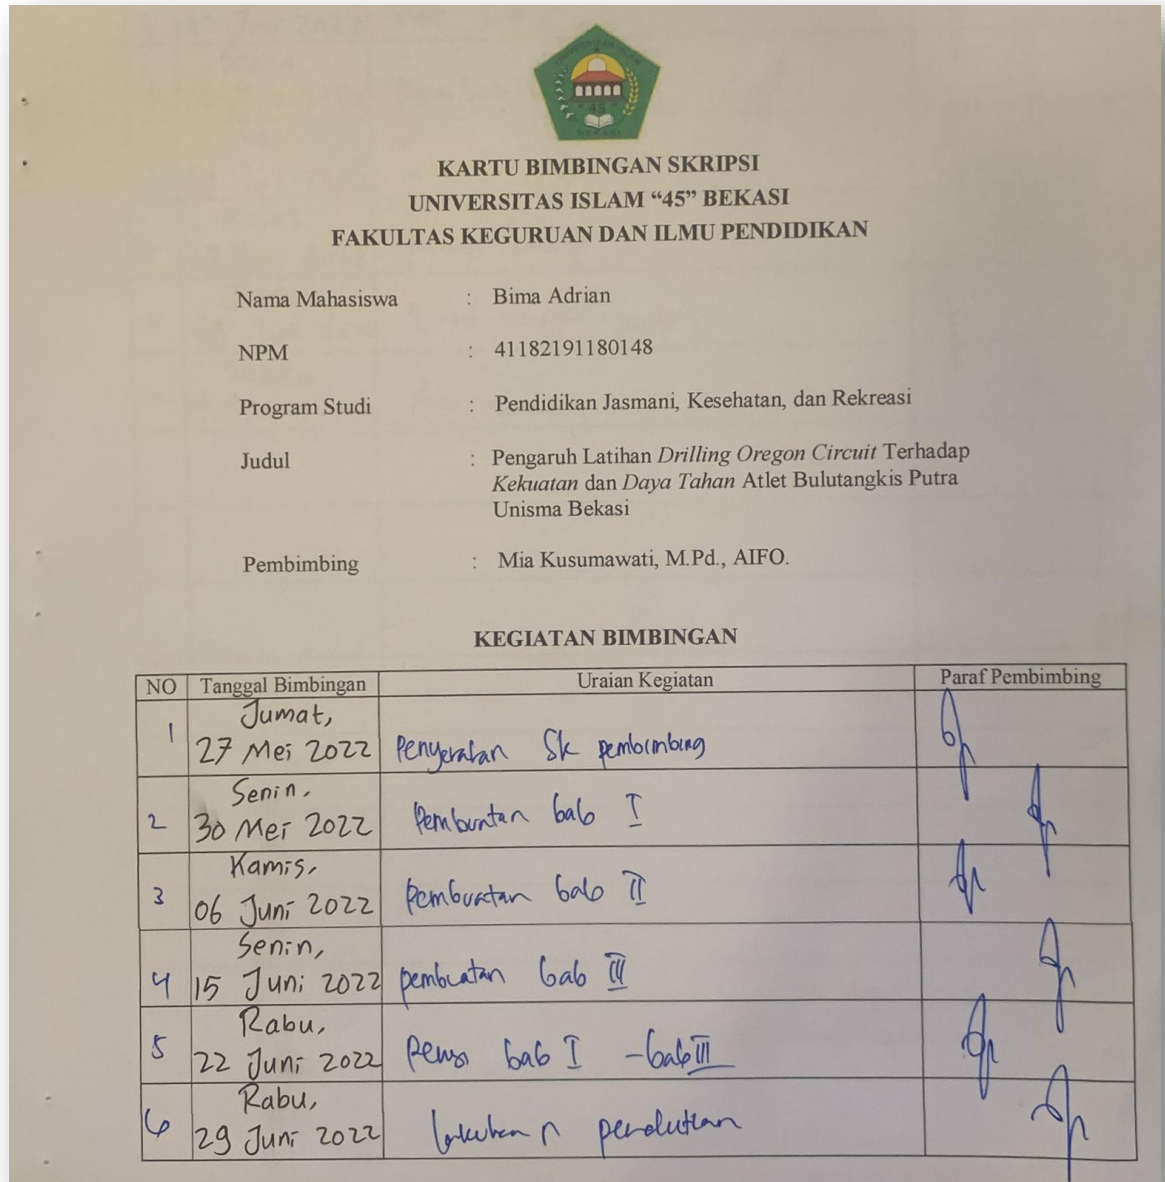 UNIVERSITAS ISLAM
"45"
BEKASI
KARTU BIMBINGAN SKRIPSI
UNIVERSITAS ISLAM “45” BEKASI
FAKULTAS KEGURUAN DAN ILMU PENDIDIKAN
Nama Mahasiswa : Bima Adrian
NPM : 41182191180148
Program Studi : Pendidikan Jasmani, Kesehatan, dan Rekreasi
Judul : Pengaruh Latihan Drilling Oregon Circuit Terhadap
Kekuatan dan Daya Tahan Atlet Bulutangkis Putra
Unisma Bekasi
Pembimbing : Mia Kusumawati, M.Pd., AIFO.
KEGIATAN BIMBINGAN
NO Tanggal Bimbingan Uraian Kegiatan Paraf Pembimbing
Jumat,
1 27 Mei 2022 Penyeratan Sk pembimbing
Senin,
2 30 Mei 2022 Pembuatan bab I
Kamis,
3 06 Juni 2022 Pembuatan bab II
Senin,
4 15 Juni 2022 pembuatan bab III
Rabu,
5 22 Juni 2022 bab I - bab III
Rabu,
6 29 Juni 2022